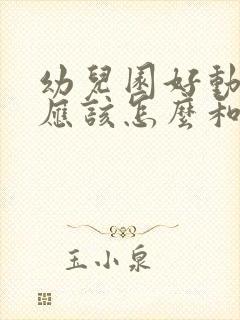 幼兒園好動
應該怎麼和
玉小泉